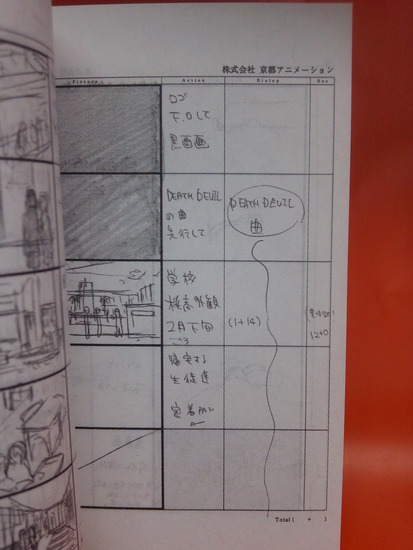 株式会社 京都アニメーション
Picture Action Dialog Sec
ロゴ
F.O して
黒画面
DEATH DEVIL
の曲
先行して
DEATH DEVIL
曲
学校
桜高外観
2月下旬
(1+14)
12+0
帰宅する
生徒達
定着PAN
Total ( + )